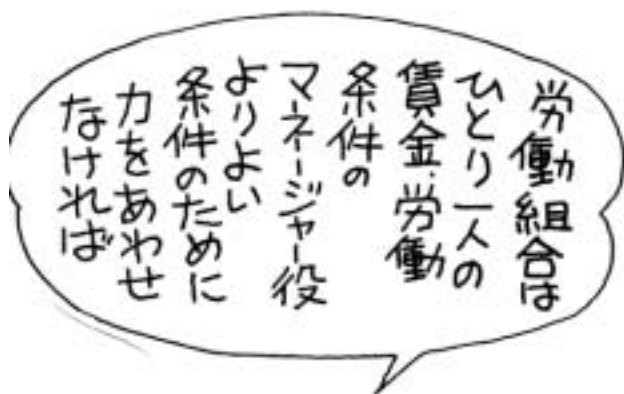 労働組合は
ひとり一人の
賃金・労働
条件の
マネージャー役
よりよい
条件のために
力をあわせ
なければ